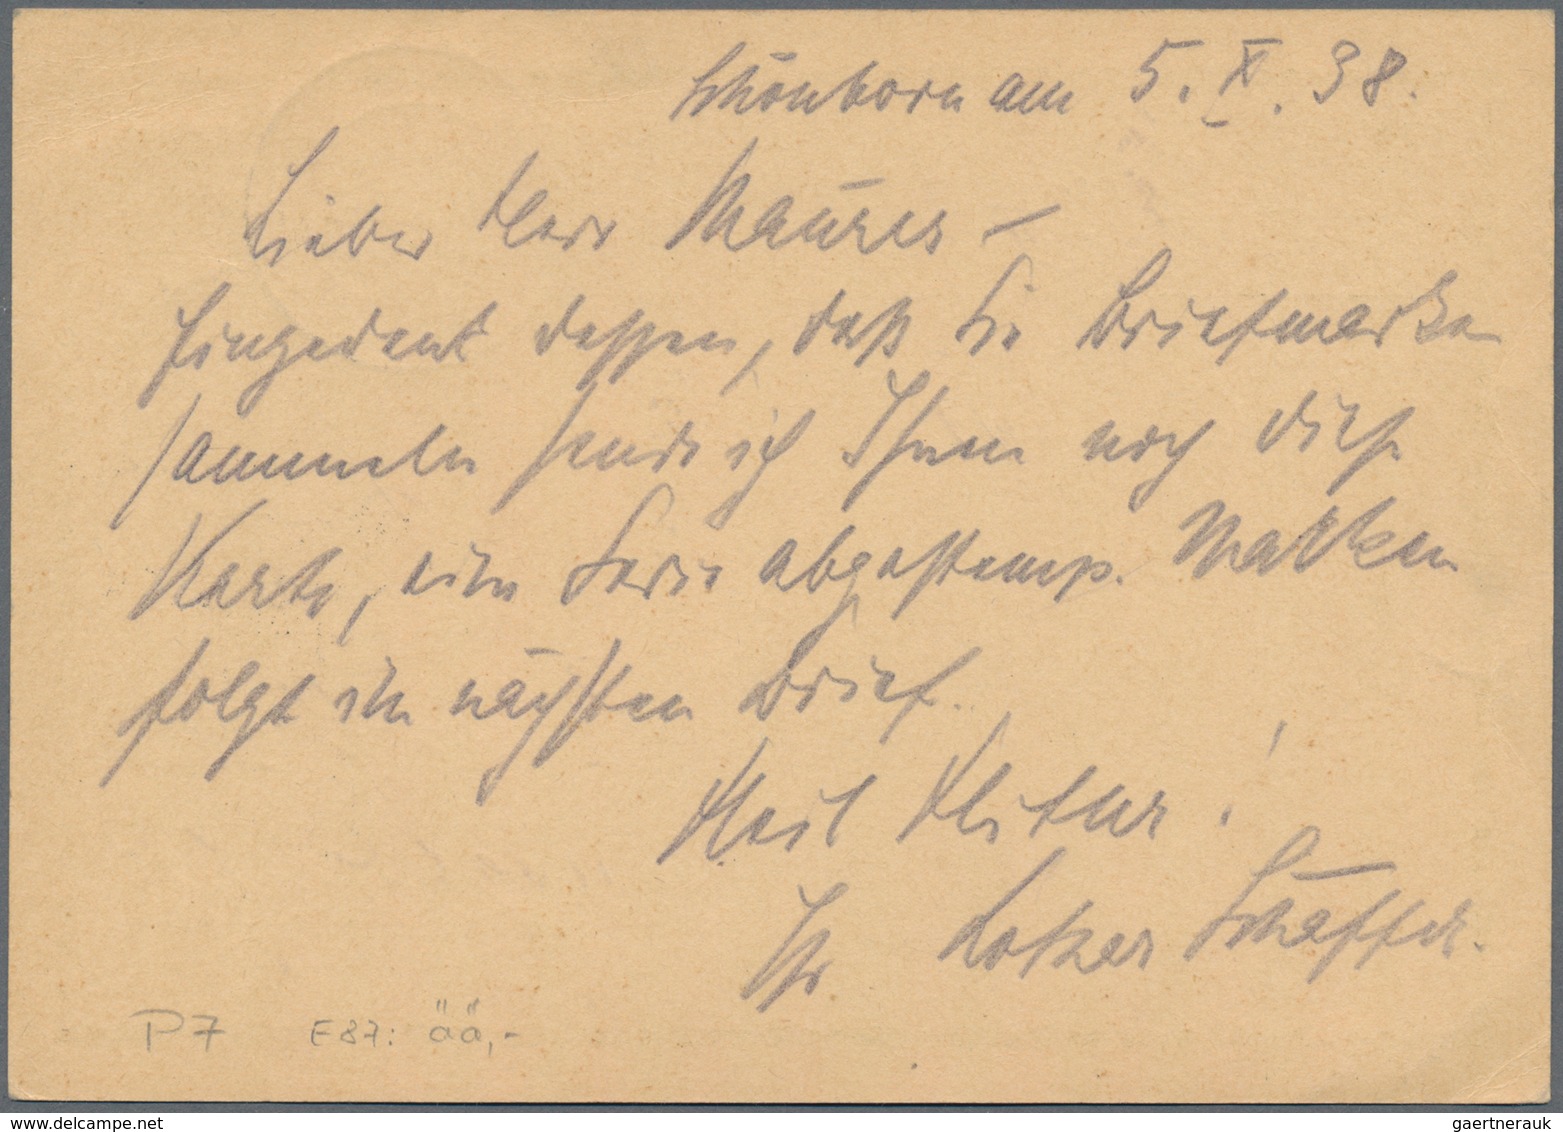 Schönborn am 5. X. 38.
Lieber Herr Maurer –
Eingedenk dessen, daß Sie Briefmarken
sammeln sende ich Ihnen noch diese
Karte, eine Serie abgestemp. Marken
folgt im nächsten Brief.
Heil Hitler!
Ihr Lothar Schäffer.
P7 E87: ää,-
gaertnerauk@delcampe.net